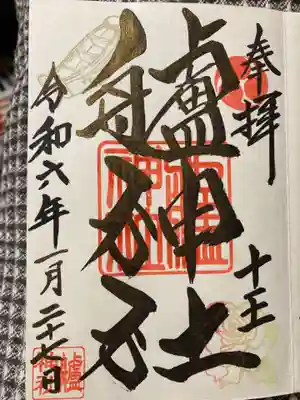 奉拝
十王
艫神社
令和六年一月二十七日